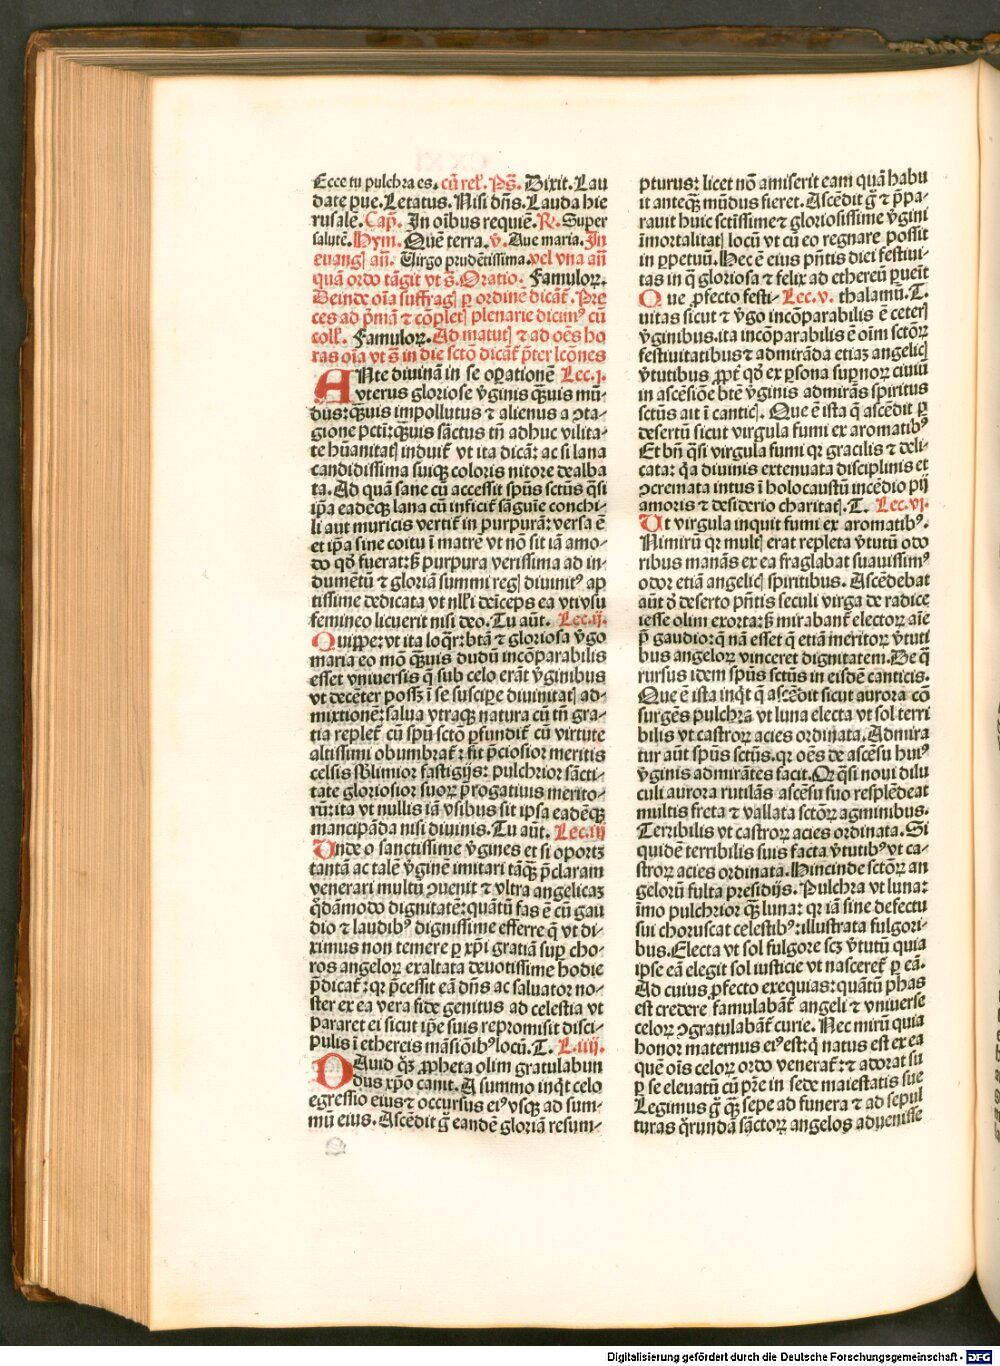 Ecce tu pulchra es. cū rel̄. Ps̄. Dixit. Lau
date pue. Letatus. Nisi dn̄s. Lauda hie
rusalē. Cap̄. In oībus requiē. R̄. Super
salutē. Hym. Quē terra. v̄. Aue maria. In
euangꝭ an̄. Virgo prudētissima. vel vna an̄
quā ordo tāgit vt s̄. Oratio. Famuloꝝ.
Deinde oīa suffragꝭ ꝑ ordinē dicāt̄. Pre
ces ad p̄mā ⁊ cōpletꝭ plenarie dicunꝰ cū
coll̄. Famuloꝝ. Ad matutꝭ ⁊ ad oēs ho
ras oīa vt s̄ in die sctō dicāt̄ p̄ter lcōnes
ANte diuinā in se oꝑationē Lec.j.
vterus gloriose v̄ginis qᷓuis mū-
dus: qᷓuis impollutus ⁊ alienus a ↄta-
gione pctī: qᷓuis sāctus tn̄ adhuc vilita-
te hūanitatꝭ induit̄ vt ita dicā: ac si lana
candidissima suiqꝫ coloris nitore dealba
ta. Ad quā sane cū accessit spūs sctūs qͣsi
ip̄a eadēqꝫ lana cū inficit̄ sāguīe conchi-
li aut muricis vertit̄ in purpurā: versa ē
et ip̄a sine coitu ī matrē vt nō sit iā amo-
do qͦ fuerat: sꝫ purpura verissima ad in-
dumētū ⁊ gloriā summi regꝭ diuinitꝰ ap
tissime dedicata vt nll̄i deīceps ea vti vsu
femineo licuerit nisi deo. Tu aūt. Lec.ij.
Quippe: vt ita loqͣr: btā ⁊ gloriosa v̄go
maria eo mō qᷓuis dudū incōparabilis
esset vniuersis q̄ sub celo erāt v̄ginibus
vt decēter possꝫ ī se suscipe diuinitatꝭ ad-
mixtionē: salua vtraqꝫ natura cū tn̄ gra-
tia replet̄ cū spū sctō ꝑfundit̄ cū virtute
altissimi obumbrat̄: fit p̄ciosior meritis
celsis sb̄limior fastigijs: pulchrior sācti-
tate gloriosior suoꝝ p̄rogatiuis merito-
rū: ita vt nullis iā vsibus sit ipsa eadēqꝫ
mancipāda nisi diuinis. Tu aūt. Lec.iij
Unde o sanctissime v̄gines et si oportꝫ
tantā ac talē v̄ginē imitari tāqꝫ p̄claram
venerari multū ↄuenit ⁊ vltra angelicaꝫ
qͦdāmodo dignitatē: quātū fas ē cū gau
dio ⁊ laudibꝰ dignissime efferre q̄ vt di-
ximus non temere ꝑ xp̄i gratiā suꝑ cho-
ros angeloꝝ exaltata deuotissime hodie
p̄dicat̄: qꝛ p̄cessit eā dn̄s ac saluator no-
ster ex ea vera fide genitus ad celestia vt
pararet ei sicut ip̄e suis repromisit disci-
pulis ī ethereis māsiōibꝰ locū. T. L.iiij.
DAuid qͦꝫ ꝓpheta olim gratulabun
dus xp̄o canit. A summo inqͭ celo
egressio eius ⁊ occursus eiꝰ vsqꝫ ad sum-
mū eius. Ascēdit g̊ eandē gloriā resum-
pturus: licet nō amiserit eam quā habu
it anteqᷓ mūdus fieret. Ascēdit g̊ ⁊ p̄pa-
rauit huic sctissime ⁊ gloriosissime v̄gini
īmortalitatꝭ locū vt cū eo regnare possit
in ꝑpetuū. Hec ē eius pn̄tis diei festiui-
tas in q̄ gloriosa ⁊ felix ad ethereū puēit
Que ꝓfecto festi- Lec.v. thalamū. T.
uitas sicut ⁊ v̄go incōparabilis ē ceterꝭ
v̄ginibus. ita incōparabilis ē oīm sctōꝝ
festiuitatibus ⁊ admirāda etiaꝫ angelicꝭ
v̄tutibus ꝓpt̄ qͦ ex ꝑsona supnoꝝ ciuiū
in ascēsiōe btē v̄ginis admirās spiritus
sctūs ait ī canticꝭ. Que ē ista q̄ ascēdit ꝑ
desertū sicut virgula fumi ex aromatibꝰ
Et bn̄ qͣsi virgula fumi qꝛ gracilis ⁊ deli-
cata: qꝛ diuinis extenuata disciplinis et
ↄcremata intus ī holocaustū incēdio pij
amoris ⁊ desiderio charitatꝭ. T. Lec.vj.
Ut virgula inquit fumi ex aromatibꝰ.
Nimirū qꝛ multꝭ erat repleta v̄tutū odo
ribus manās ex ea fraglabat suauissimꝰ
odor etiā angelicꝭ spiritibus. Ascēdebat
aūt d̄ deserto pn̄tis seculi virga de radice
iesse olim exorta: sꝫ mirabant̄ electoꝝ aīe
p̄ gaudio: q̄nā esset q̄ etiā meritoꝝ v̄tuti
bus angeloꝝ vinceret dignitatem. De q̄
rursus idem spūs sctūs in eisdē canticis.
Que ē ista inqͭ q̄ ascēdit sicut aurora cō
surgēs pulchra vt luna electa vt sol terri
bilis vt castroꝝ acies ordinata. Admira
tur aūt spūs sctūs. qꝛ oēs de ascēsu huiꝰ
v̄ginis admirātes facit. Qꝛ qͣsi noui dilu
culi aurora rutilās ascēsu suo resplēdeat
multis freta ⁊ vallata sctōꝝ agminibus.
Terribilis vt castroꝝ acies ordinata. Si
quidē terribilis suis facta v̄tutibꝰ vt ca-
stroꝝ acies ordinata. Hincinde sctōꝝ an
geloꝝ fulta presidijs. Pulchra vt luna:
īmo pulchrior qᷓ luna: qꝛ iā sine defectu
sui choruscat celestibꝰ: illustrata fulgori-
bus. Electa vt sol fulgore scꝫ v̄tutū quia
ipse eā elegit sol iusticie vt nasceret̄ ꝑ eā.
Ad cuius ꝓfecto exequias: quātū phas
est credere famulabāt̄ angeli ⁊ vniuerse
celoꝝ ↄgratulabāt̄ curie. Nec mirū quia
honor maternus eiꝰ est: q̄ natus est ex ea
quē oīs celoꝝ ordo venerat̄: ⁊ adorat su
ꝑ se eleuatū cū pr̄e in sede maiestatis sue
Legimus g̊ qᷓ sepe ad funera ⁊ ad sepul
turas qͦrundā sāctoꝝ angelos aduenisse
Digitalisierung gefördert durch die Deutsche Forschungsgemeinschaft - DFG